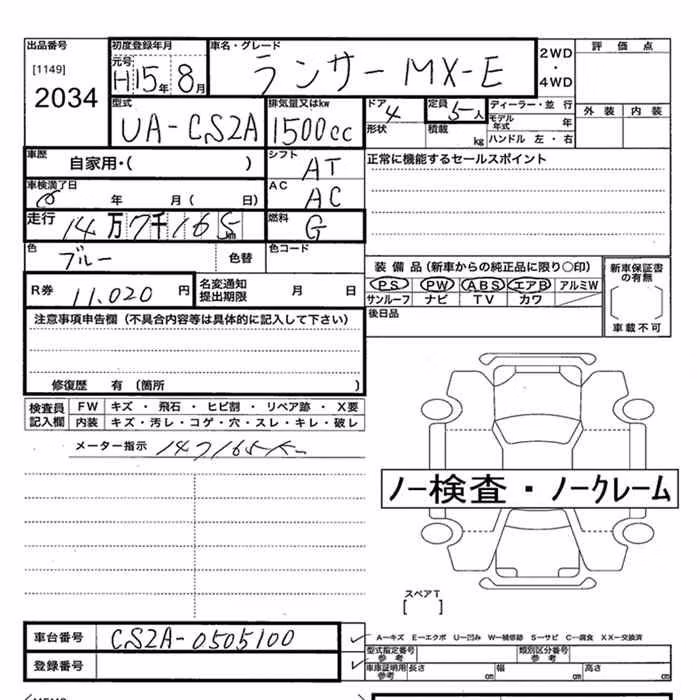 出品番号 初度登録年月 車名・グレード 2WD・4WD 評価点
[1149] 元号 H15年8月 ランサー MX-E
2034
型式 排気量又はkw ドア 4 定員 5人 ディーラー・並行 外装 内装
UA-CS2A 1500cc 形状 積載 kg モデル年式 年
ハンドル 左・右
車歴 自家用・( ) シフト AT 正常に機能するセールスポイント
車検満了日 年 月( 日) AC AC
走行 14万7千165km 燃料 G
色 ブルー 色替 色コード
装備品(新車からの純正品に限り○印) 新車保証書の有無
PS PW ABS エアB アルミW
R券 11,020円 名変通知提出期限 月 日 サンルーフ ナビ TV カワ
後日品 車載不可
注意事項申告欄(不具合内容等は具体的に記入して下さい)
修復歴 有 〔箇所 〕
検査員記入欄 FW キズ・飛石・ヒビ割・リペア跡・X要
内装 キズ・汚レ・コゲ・穴・スレ・キレ・破レ
メーター指示 147165K
ノー検査・ノークレーム
スペアT
[ ]
車台番号 CS2A-0505100
A―キズ E―エクボ U―凹み W―補修跡 S―サビ C―腐食 XX―交換済
型式指定番号 参考 類別区分番号 参考
登録番号 車庫証明用 参考 長さ cm 幅 cm 高さ cm